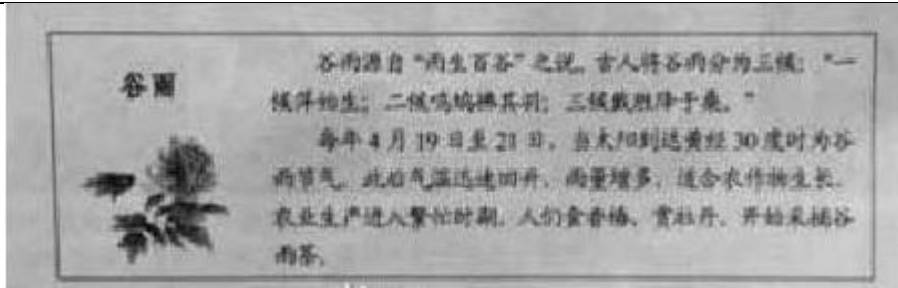 谷雨
谷雨源自“雨生百谷”之说。古人将谷雨分为三候：“一
候萍始生；二候鸣鸠拂其羽；三候戴胜降于桑。”
每年4月19日至21日，当太阳到达黄经30度时为谷
雨节气。此后气温迅速回升，雨量增多，适合农作物生长。
农业生产进入繁忙时期。人们食香椿、赏牡丹、开始采摘谷
雨茶。